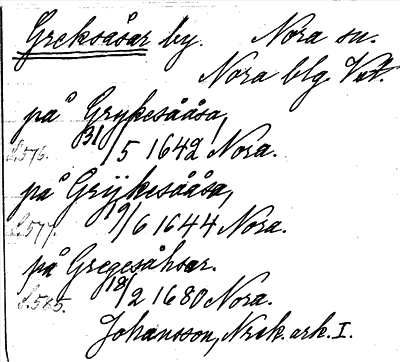 Greksåsar by. Nora sn.
Nora blg Vstm.
på Grykesååsa,
s. 576. 31/5 1642 Nora.
på Grijkesååsa,
s. 577. 19/6 1644 Nora.
på Gregesåhsar.
s. 565. 18/2 1680 Nora.
Johansson, Norask. ark. I.